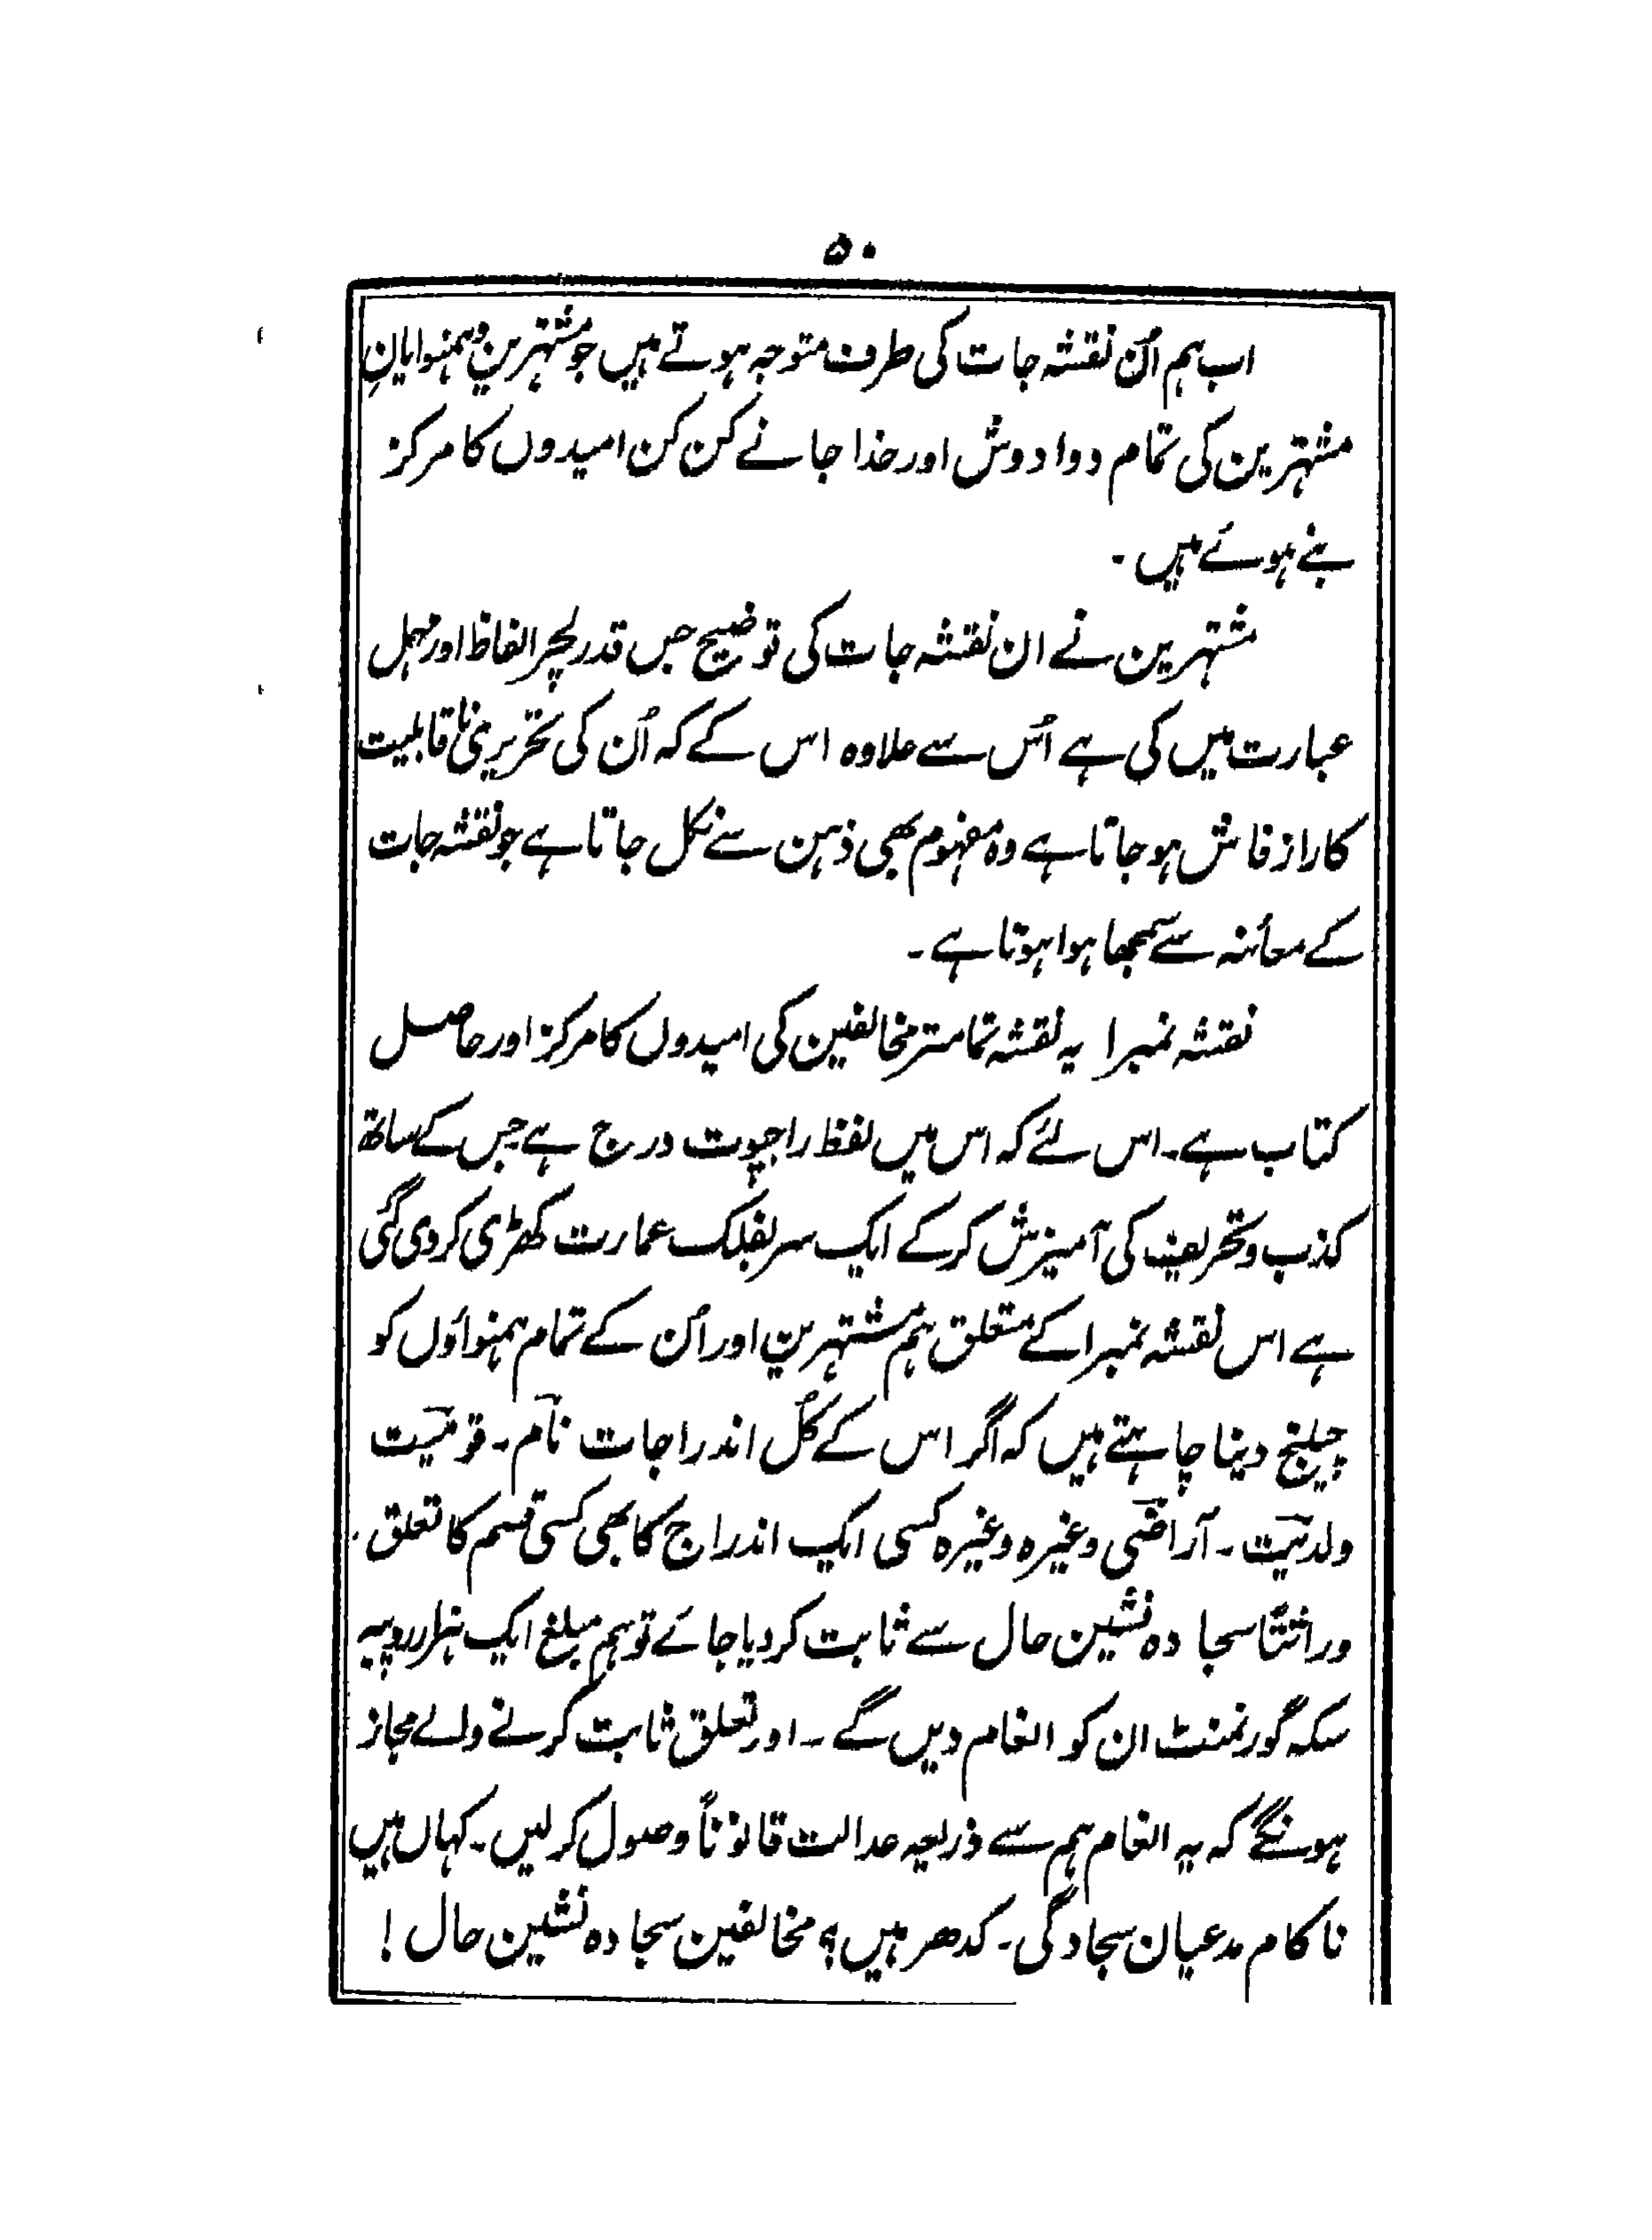 ۵۰
اب ہم اُن نقشہ جات کی طرف متوجہ ہوتے ہیں جو مشتہرین وہمنوایانِ
مشتہرین کی تمام دوادوش اور خدا جانے کن کن امیدوں کا مرکز
بنے ہوئے ہیں ۔
مشتہرین نے ان نقشہ جات کی توضیح جس قدر لچر الفاظ اور مہمل
عبارت میں کی ہے اُس سے علاوہ اس کے کہ اُن کی تحریری ناقابلیت
کا راز فاش ہو جاتا ہے وہ مفہوم بھی ذہن سے نکل جاتا ہے جو نقشہ جات
کے معائنہ سے سمجھا ہوا ہوتا ہے ۔
نقشہ نمبر ۱ یہ نقشہ تمامتر مخالفین کی امیدوں کا مرکز اور حاصل
کتاب ہے ۔ اس لئے کہ اس میں لفظ راجپوت درج ہے جس کے ساتھ
کذب و تحریف کی آمیزش کرکے ایک سر بفلک عمارت کھڑی کر دی گئی
ہے اس نقشہ نمبر ۱ کے متعلق ہم مشتہرین اور اُن کے تمام ہمنواؤں کو
چیلنج دینا چاہتے ہیں کہ اگر اس کے کُل اندراجات نام ۔ قومیت
ولدیت ۔ آراضی وغیرہ وغیرہ کسی ایک اندراج کا بھی کسی قسم کا تعلق
وراثتاً سجادہ نشین حال سے ثابت کر دیا جائے تو ہم مبلغ ایک ہزار روپیہ
سکہ گورنمنٹ ان کو انعام دیں گے ۔ اور تعلق ثابت کرنے والے مجاز
ہونگے کہ یہ انعام ہم سے ذریعہ عدالت قانوناً وصول کر لیں ۔ کہاں ہیں
ناکام مدعیان سجادگی ۔ کدھر ہیں؟ مخالفین سجادہ نشین حال !